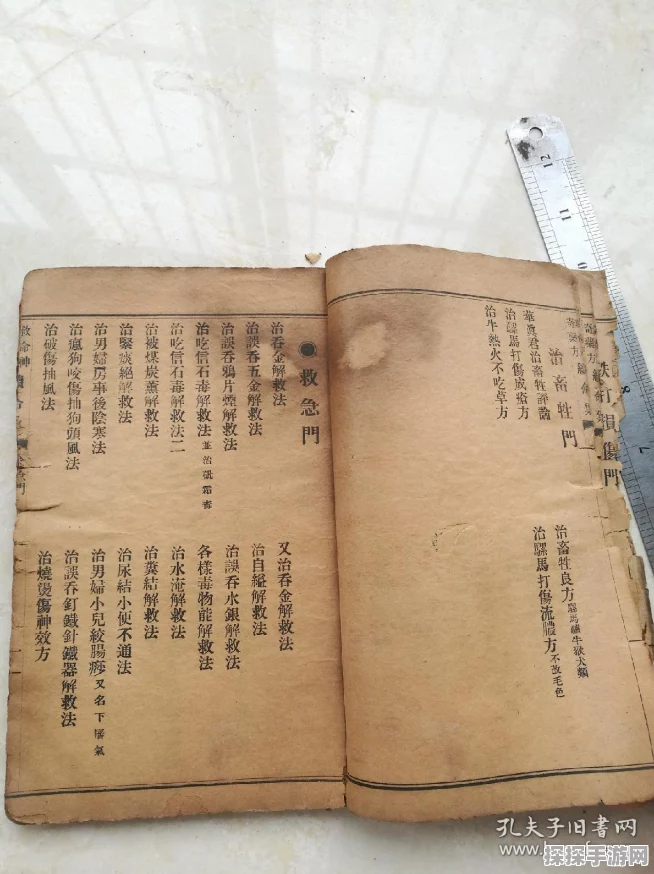 治畜牲門
華真君治畜牲評論
治騾馬打傷成瘡方
治牛熱火不吃草方
治畜牲良方
治騾馬打傷流膿方不改毛色
救急門
治吞金解救法
又治吞金解救法
治誤吞五金解救法
治自縊解救法
治誤吞鴉片煙解救法
治誤吞水銀解救法
治吃信石毒解救法並治砒霜毒
各樣毒物能解救法
治吃信石毒解救法二
治水淹解救法
治被煤炭薰解救法
治糞結解救法
治緊痰絕解救法
治尿結小便不通法
治男婦房事後陰寒法
治男婦小兒絞腸痧又名下
治瘋狗咬傷抽狗頭風法
治誤吞釘鐵針鐵器解救法
治破傷抽風法
治燒燙傷神效方
打損傷門
12
11
8
7
孔夫子旧书网
探探手游网